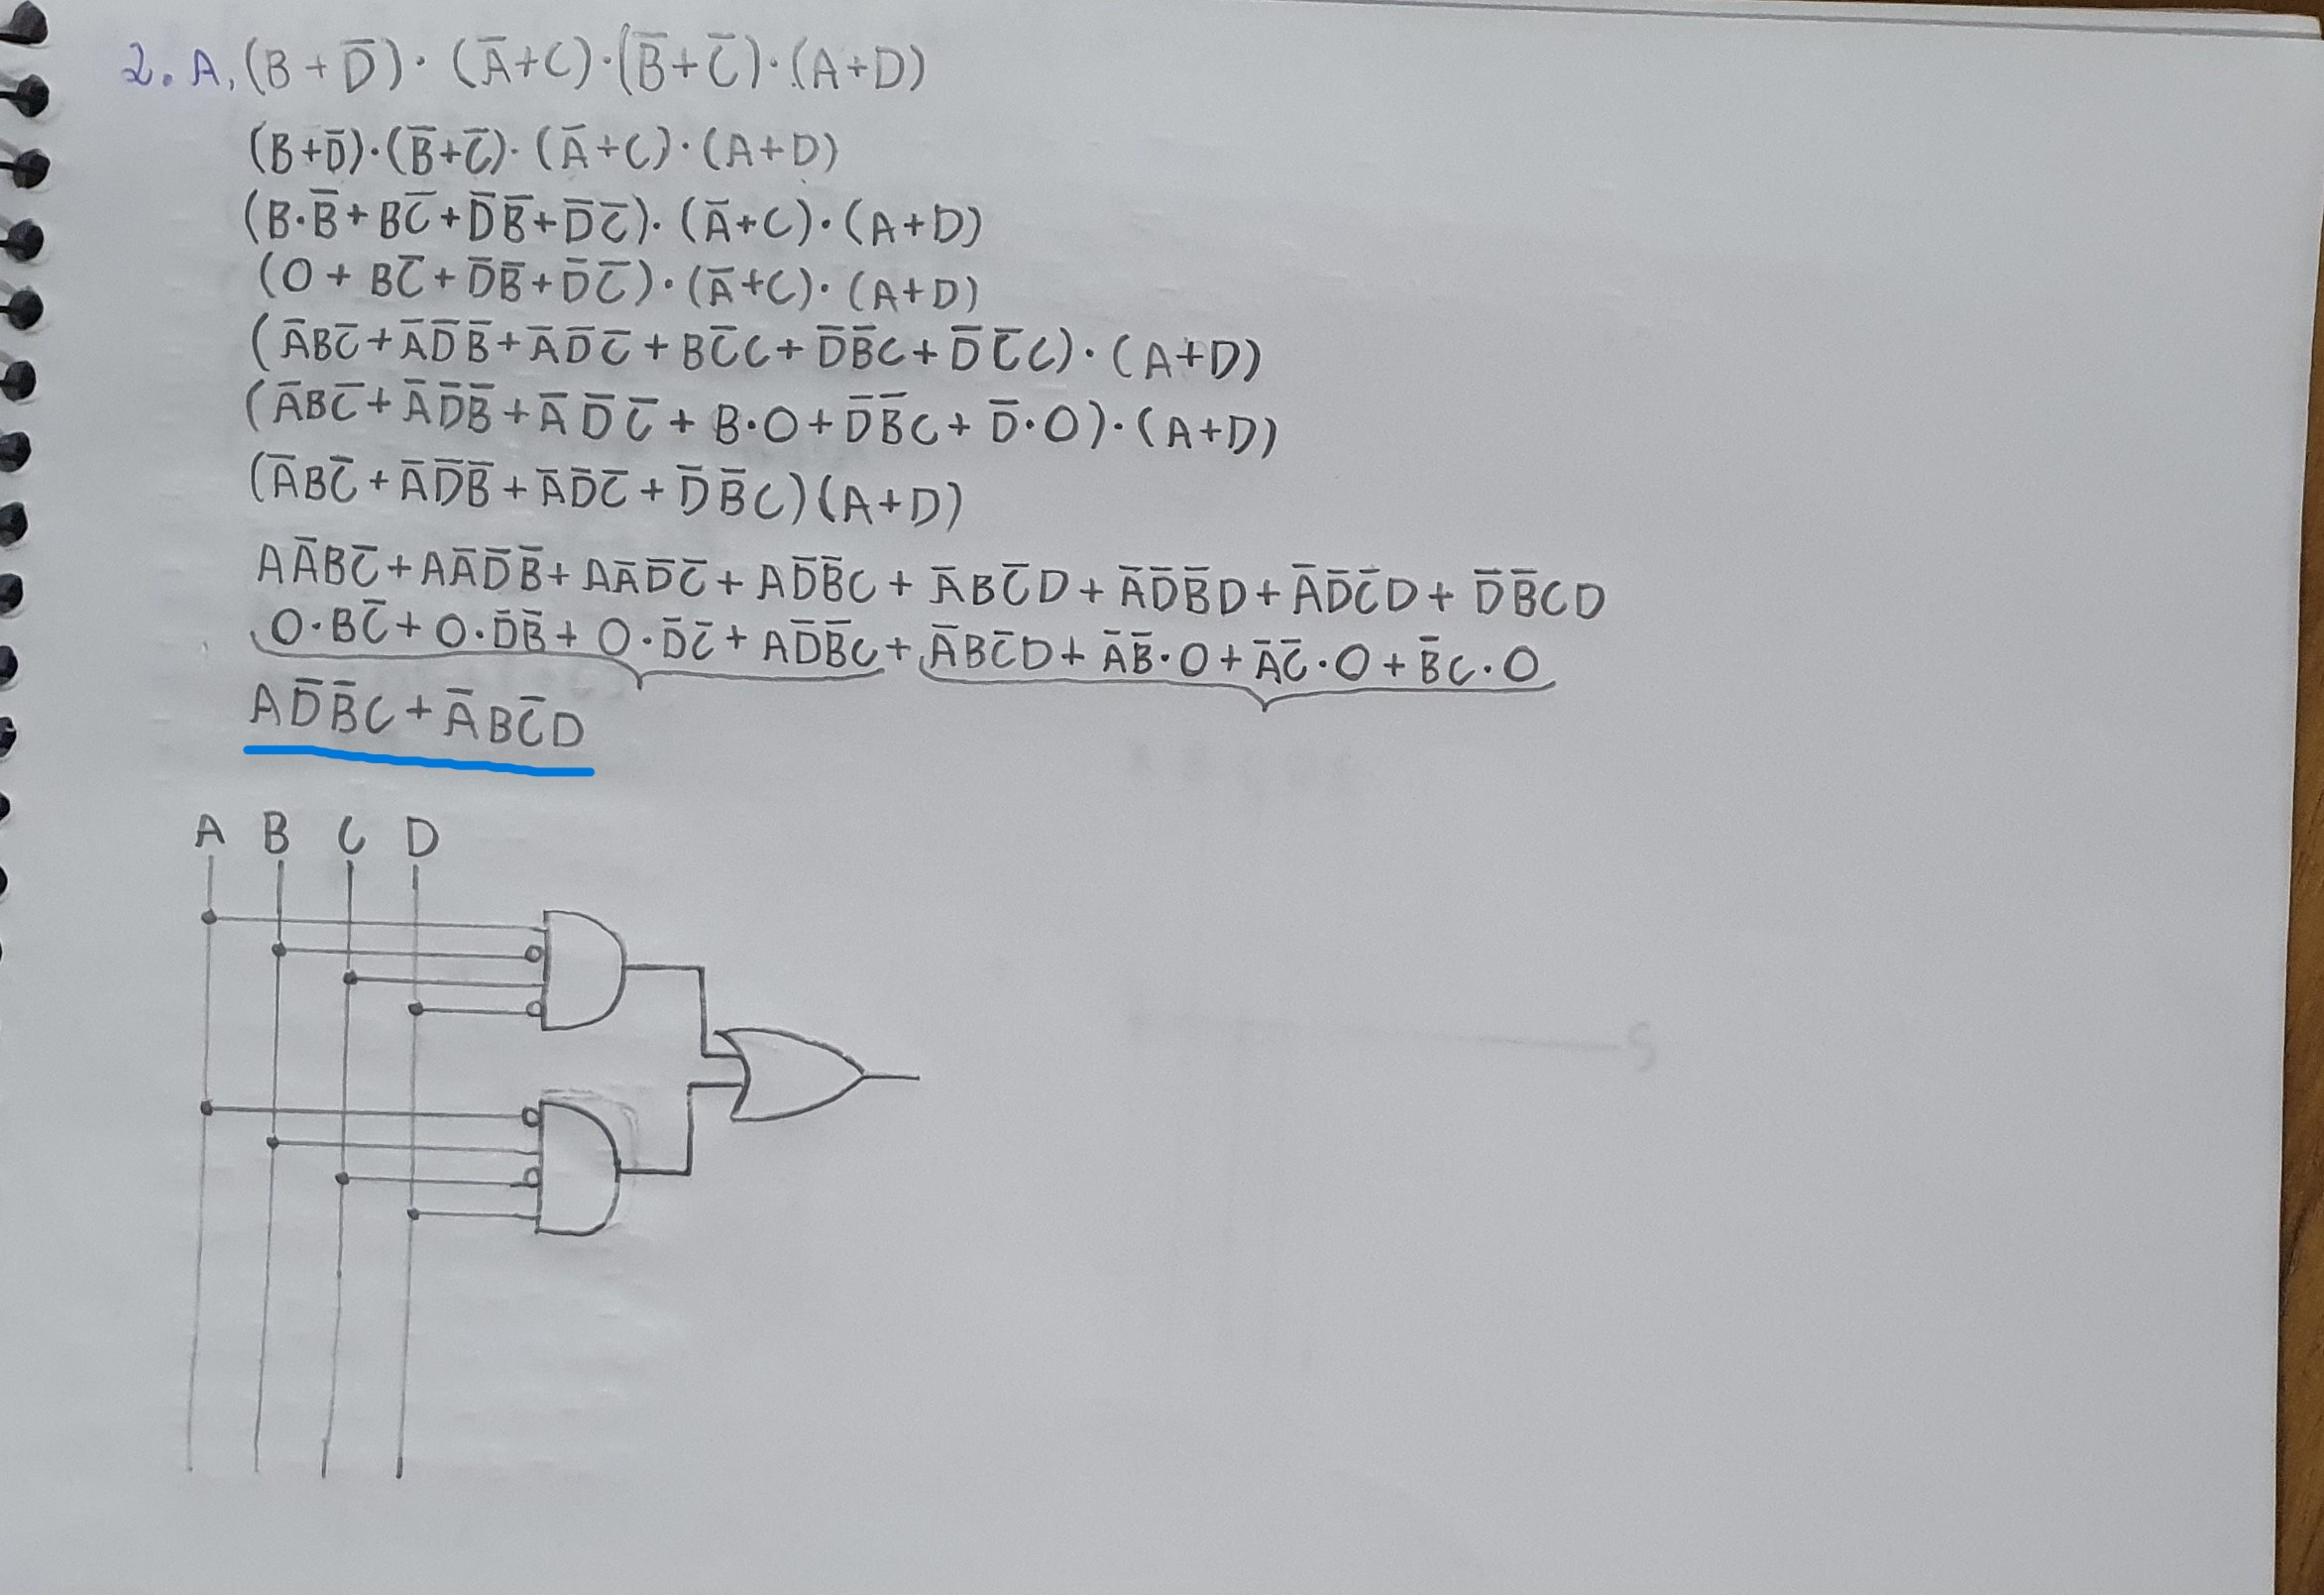 2. A, (B + D̅) · (A̅+C) · (B̅+C̅) · (A+D)
(B+D̅)·(B̅+C̅)· (A̅+C)·(A+D)
(B·B̅+BC̅+D̅B̅+D̅C̅)· (A̅+C)·(A+D)
(0 + BC̅+D̅B̅+D̅C̅)·(A̅+C)· (A+D)
(A̅BC̅+A̅D̅B̅+A̅D̅C̅+BC̅C+D̅B̅C+D̅C̅C)·(A+D)
(A̅BC̅+A̅D̅B̅+A̅D̅C̅+B·0+D̅B̅C+D̅·0)·(A+D)
(A̅BC̅+A̅D̅B̅+A̅D̅C̅+D̅B̅C)(A+D)
AA̅BC̅+AA̅D̅B̅+AA̅D̅C̅+AD̅B̅C+A̅BC̅D+A̅D̅B̅D+A̅D̅C̅D+D̅B̅CD
0·BC̅+0·D̅B̅+0·D̅C̅+AD̅B̅C+A̅BC̅D+A̅B̅·0+A̅C̅·0+B̅C·0
AD̅B̅C+A̅BC̅D
A B C D